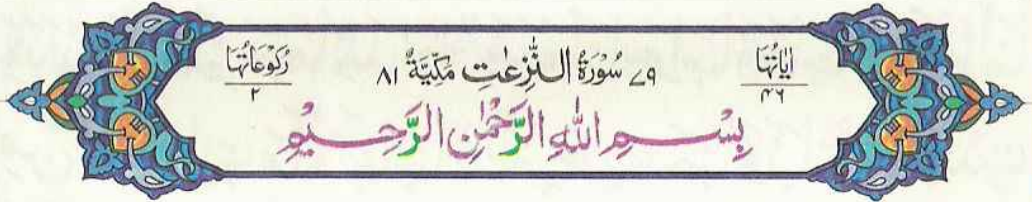 اٰيَاتُهَا ٤٦
٧٩ سُوْرَةُ النّٰزِعٰتِ مَكِّيَّةٌ ٨١
رُكُوْعَاتُهَا ٢
بِسْمِ اللّٰهِ الرَّحْمٰنِ الرَّحِيْمِ